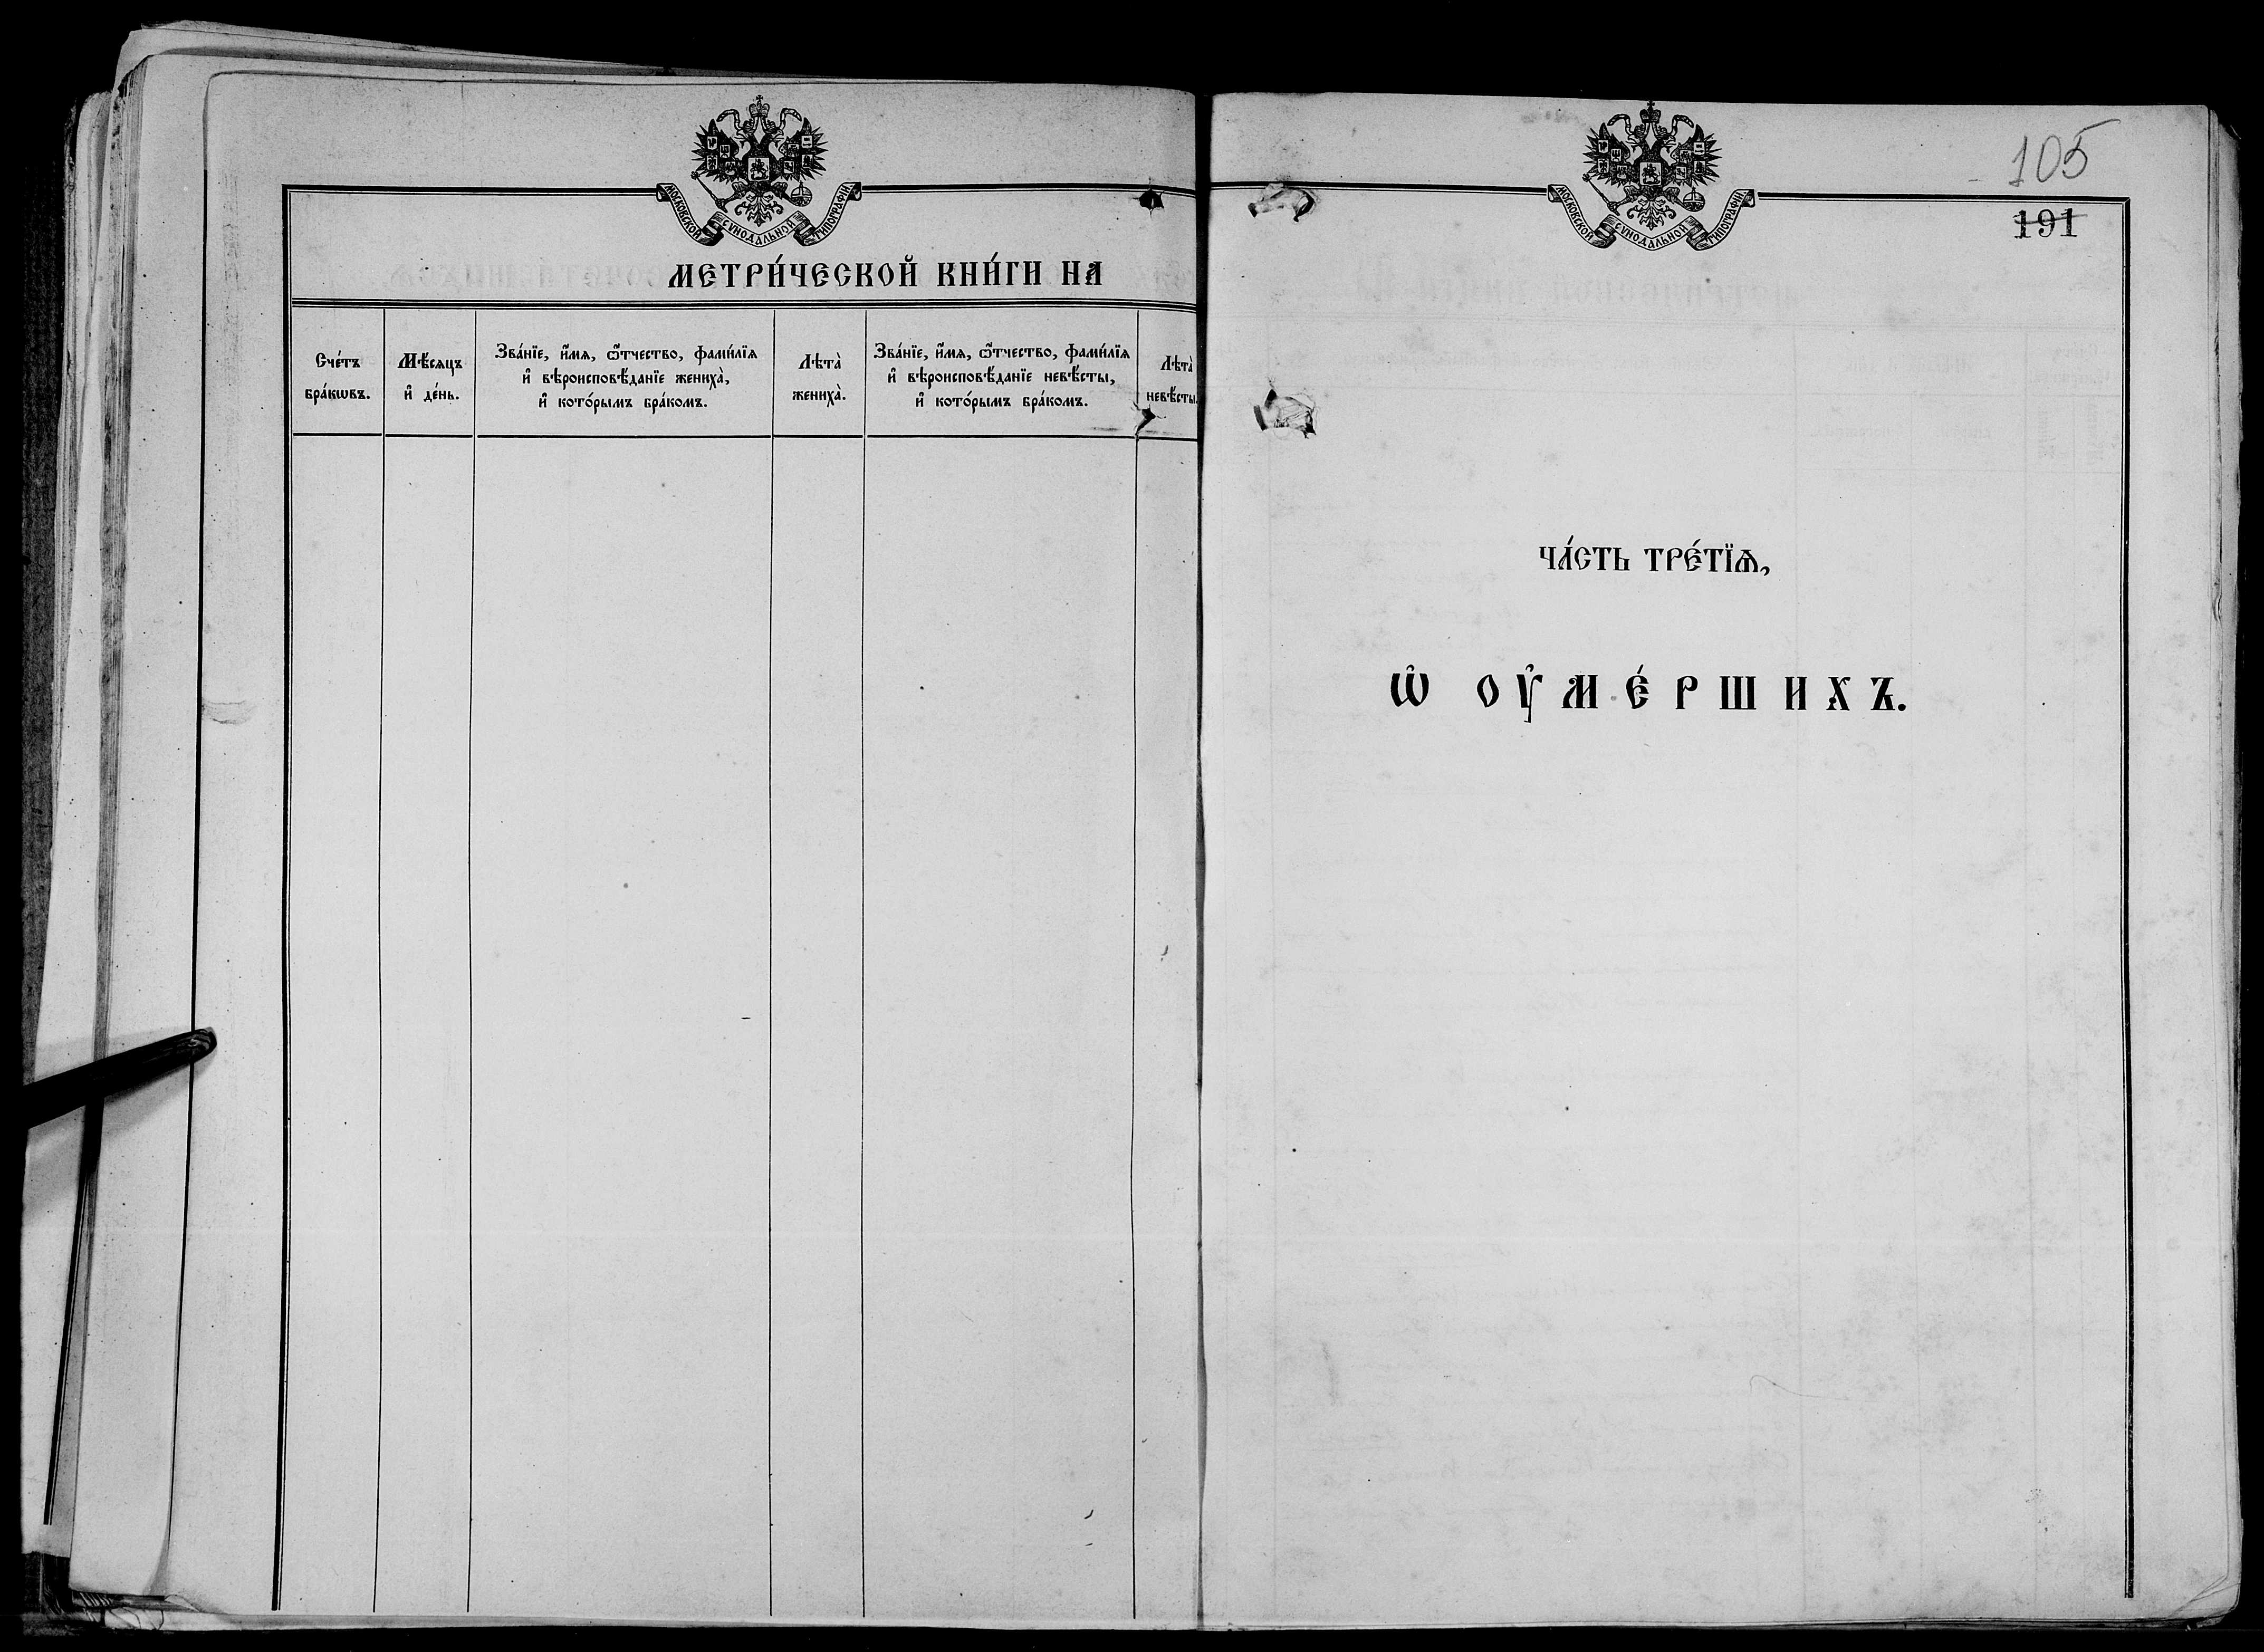 МОСКОВСКОЙ СѴНОДАЛЬНОЙ ТИПОГРАФІИ
МЕТРИ́ЧЕСКОЙ КНИ́ГИ НА
Сче́тъ
бра́кѡвъ.
Мѣ́сяцъ
и҆ де́нь.
Зва́нїе, и҆́мѧ, ѻ҆́тчество, фами́лїѧ
и҆ вѣроисповѣ́данїе жениха̀,
и҆ кото́рымъ бра́комъ.
Лѣта̀
жениха̀.
Зва́нїе, и҆́мѧ, ѻ҆́тчество, фами́лїѧ
и҆ вѣроисповѣ́данїе невѣ́сты,
и҆ кото́рымъ бра́комъ.
Лѣта̀
невѣ́сты.
МОСКОВСКОЙ СѴНОДАЛЬНОЙ ТИПОГРАФІИ
105
191
ЧА́СТЬ ТРЕ́ТЇѦ,
Ѡ҆ ОУ҆МЕ́РШИХЪ.